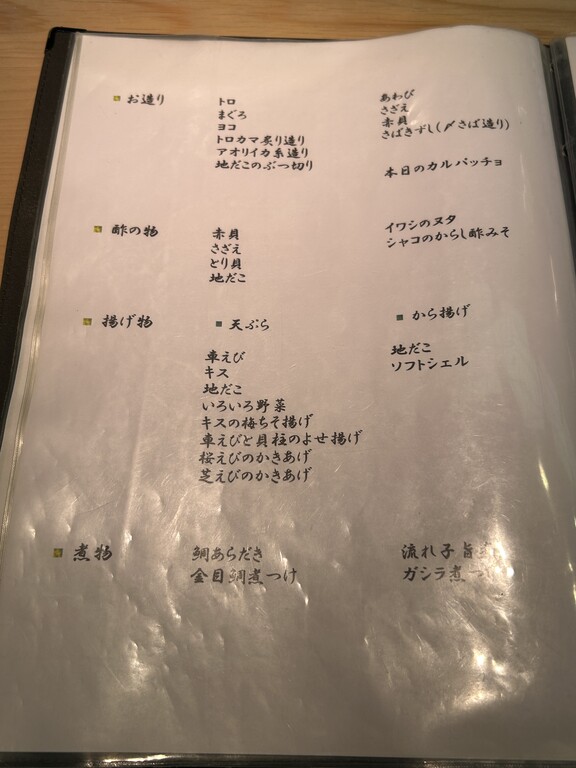 お造り
トロ
まぐろ
ヨコ
トロカマ炙り造り
アオリイカ糸造り
地だこのぶつ切り
あわび
さざえ
赤貝
さばきずし(〆さば造り)
本日のカルパッチョ
酢の物
赤貝
さざえ
とり貝
地だこ
イワシのヌタ
シャコのからし酢みそ
揚げ物
天ぷら
車えび
キス
地だこ
いろいろ野菜
キスの梅ちそ揚げ
車えびと貝柱のよせ揚げ
桜えびのかきあげ
芝えびのかきあげ
から揚げ
地だこ
ソフトシェル
煮物
鯛あらだき
金目鯛煮つけ
流れ子旨
ガシラ煮つ